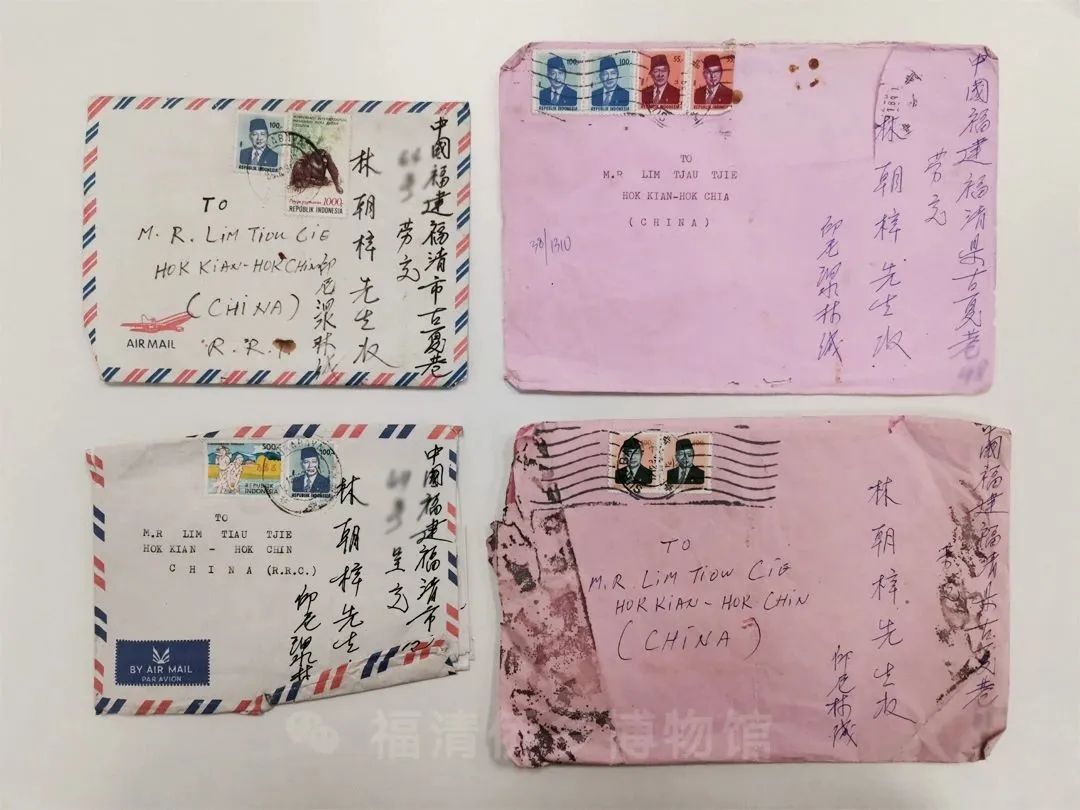 100.-
REPUBLIK INDONESIA
1000.-
REPUBLIK INDONESIA
TO
M. R. LIM TIOW CIE
HOK KIAN-HOK CHIN
(CHINA)
R. R. T
AIR MAIL
中國福建福清市古夏巷
劳交
林朝梓先生收
印尼
100.-
100.-
55.-
55.-
REPUBLIK INDONESIA
REPUBLIK INDONESIA
REPUBLIK INDONESIA
REPUBLIK INDONESIA
TO
M.R LIM TJAU TJIE
HOK KIAN-HOK CHIA
(CHINA)
30/1310
中國福建福清県古夏巷
劳交
林朝梓先生收
印尼
500.-
REPUBLIK INDONESIA
100.-
REPUBLIK INDONESIA
TO
M.R LIM TIAU TJIE
HOK KIAN - HOK CHIN
CHINA (R.R.C.)
BY AIR MAIL
PAR AVION
中國福建福清市
呈交
林朝梓先生
印尼
TO
M.R. LIM TIOW CIE
HOK KIAN-HOK CHIN
(CHINA)
國福建福清県古夏巷
林朝梓先生收
印尼林
福清
博物馆